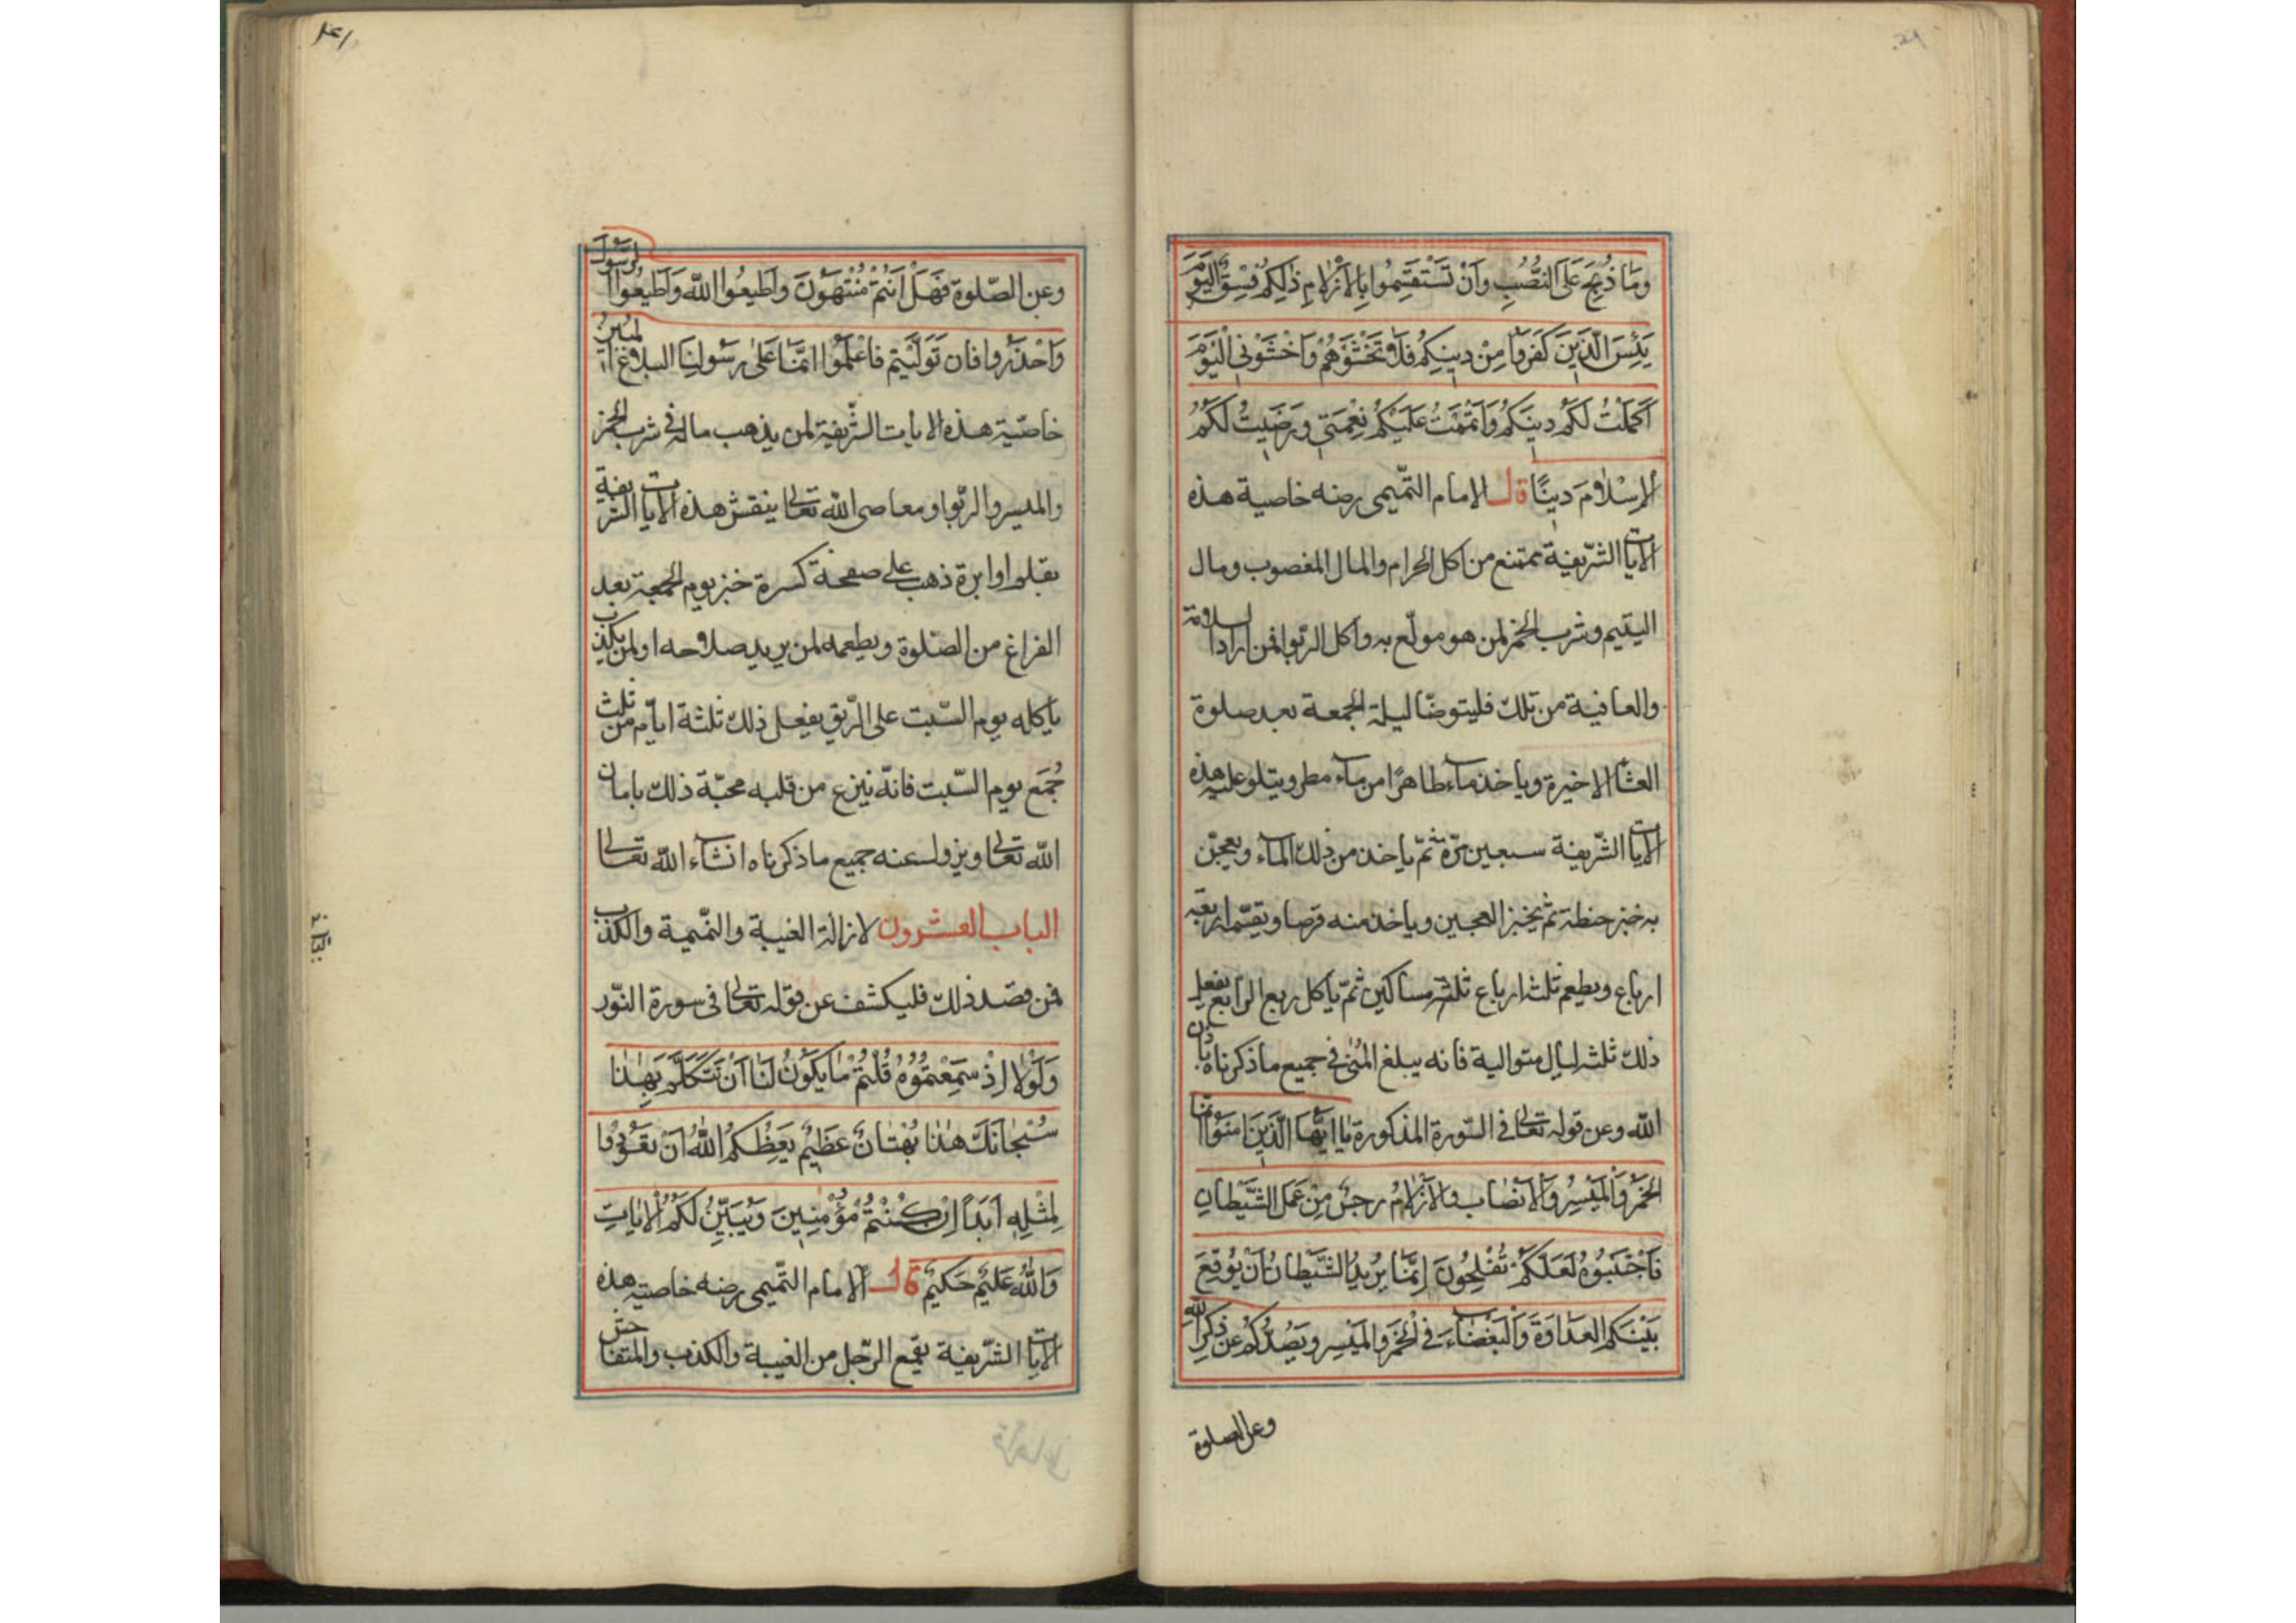 وَمَا ذُبِحَ عَلَى النُّصُبِ وَاَنْ تَسْتَقْسِمُوا بِالْاَزْلَامِ ذٰلِكُمْ فِسْقٌ اَلْيَوْمَ
يَئِسَ الَّذِينَ كَفَرُوا مِنْ دِينِكُمْ فَلَا تَخْشَوْهُمْ وَاخْشَوْنِي اَلْيَوْمَ
اَكْمَلْتُ لَكُمْ دِينَكُمْ وَاَتْمَمْتُ عَلَيْكُمْ نِعْمَتِي وَرَضِيتُ لَكُمُ
الْاِسْلَامَ دِينًا قال الامام التّميمى رضه خاصية هذه
الآيات الشّريفة تمتنع من اكل الحرام والمال المغصوب ومال
اليتيم وشرب الخمر لمن هو مولّع به واكل الرّبوا فمن اراد السلامة
والعافية من تلك فليتوضّا ليلة الجمعة بعد صلوة
العشا الاخيرة وياخذ ماء طاهرًا من ماء مطر ويتلو عليه هذه
الآيات الشّريفة سبعين مرّة ثمّ ياخذ من ذلك الماء ويعجن
به خبز حنطة ثم يخبز العجين وياخذ منه قرصا ويقسّم اربعة
ارباع ويطعم ثلث ارباع ثلثة مساكين ثمّ ياكل ربع الرابع يفعل
ذلك ثلث ليال متوالية فانه يبلغ المنى فى جميع ما ذكرناه باذن
الله وعن قوله تعالى فى السّورة المذكورة يَا اَيُّهَا الَّذِينَ اٰمَنُوا اِنَّمَا
الْخَمْرُ وَالْمَيْسِرُ وَالْاَنْصَابُ وَالْاَزْلَامُ رِجْسٌ مِنْ عَمَلِ الشَّيْطَانِ
فَاجْتَنِبُوهُ لَعَلَّكُمْ تُفْلِحُونَ اِنَّمَا يُرِيدُ الشَّيْطَانُ اَنْ يُوقِعَ
بَيْنَكُمُ الْعَدَاوَةَ وَالْبَغْضَاءَ فِى الْخَمْرِ وَالْمَيْسِرِ وَيَصُدَّكُمْ عَنْ ذِكْرِ اللهِ
وعن الصلوة
وعن الصّلوة فَهَلْ اَنْتُمْ مُنْتَهُونَ وَاَطِيعُوا اللهَ وَاَطِيعُوا الرَّسُولَ
وَاحْذَرُوا فان تَوَلَّيْتُمْ فَاعْلَمُوا اَنَّمَا عَلٰى رَسُولِنَا البلاغ المُبينُ
خاصّية هذه الايات الشّريفة لمن يذهب ماله فى شرب الخمر
والميسر والرّبوا ومعاصى الله تعالى ينقش هذه الآيات الشريفة
بقلم او ابرة ذهب على صفحة كسرة خبز يوم الجمعة بعد
الفراغ من الصّلوة ويطعمه لمن يريد صلاحه او لمن يكذب
ياكله يوم السّبت على الرّيق يفعل ذلك ثلثة ايام من ثلث
جُمَع يوم السّبت فانّه ينزع من قلبه محبّة ذلك بامان
الله تعالى ويزول عنه جميع ما ذكرناه انشاء الله تعالى
الباب العشرون لازالة الغيبة والنّميمة والكذب
فمن قصد ذلك فليكشف عن قوله تعالى فى سورة النّور
وَلَوْلَا اِذْ سَمِعْتُمُوهُ قُلْتُمْ مَا يَكُونُ لَنَا اَنْ نَتَكَلَّمَ بِهٰذَا
سُبْحَانَكَ هٰذَا بُهْتَانٌ عَظِيمٌ يَعِظُكُمُ اللهُ اَنْ تَعُودُوا
لِمِثْلِهِ اَبَدًا اِنْ كُنْتُمْ مُؤْمِنِينَ وَيُبَيِّنُ لَكُمُ الْاٰيَاتِ
وَاللهُ عَلِيمٌ حَكِيمٌ قال الامام التّميمى رضه خاصية هذه
الآيات الشّريفة يقمع الرّجل من الغيبة والكذب والمتفاحش